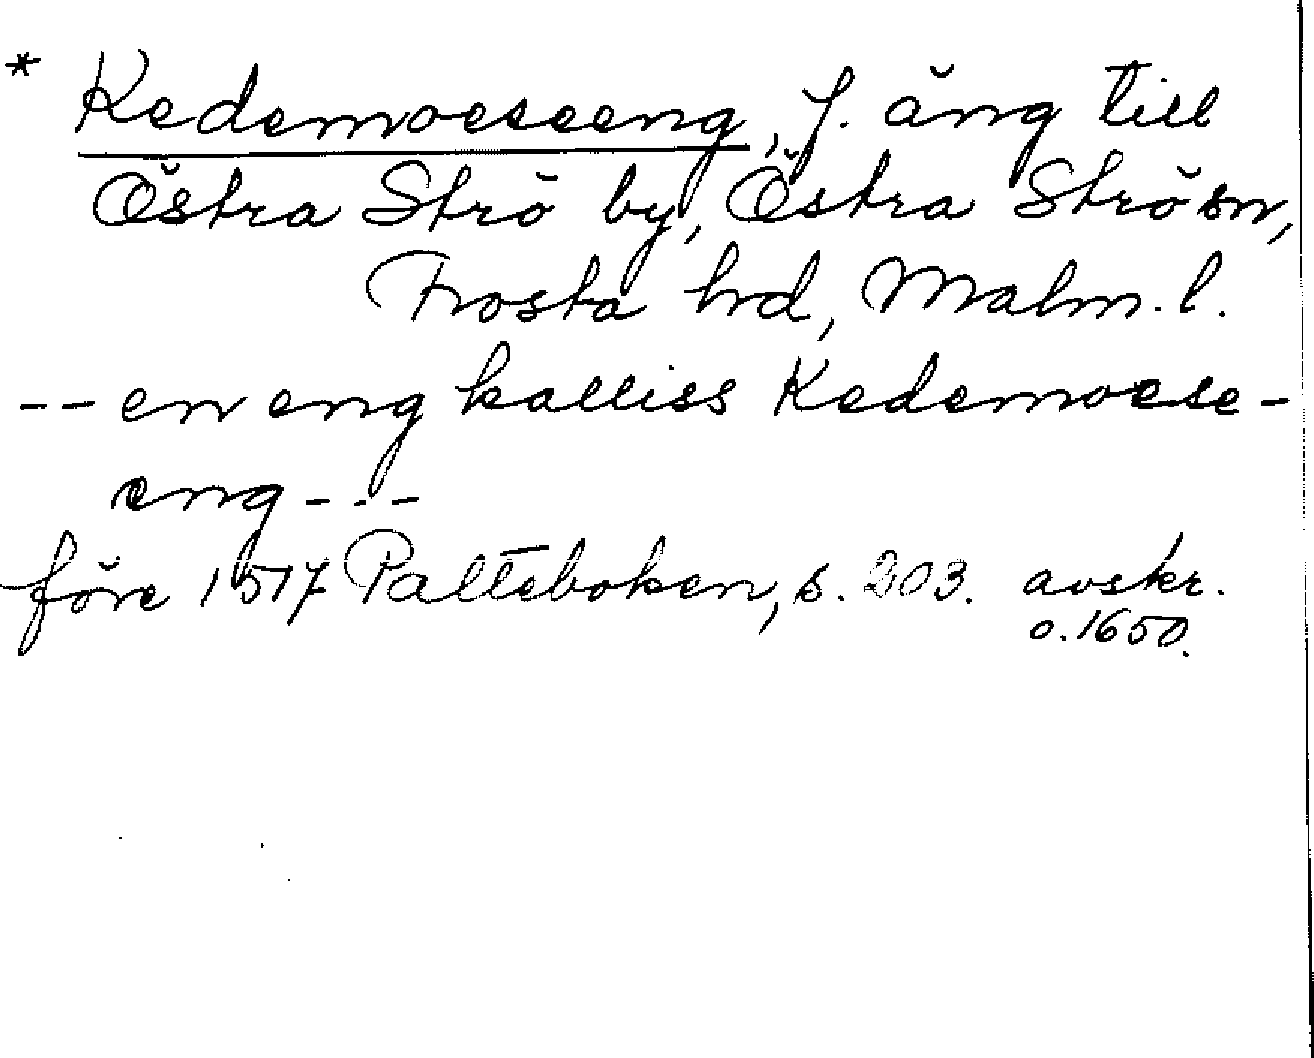 * Kedemoeseeng, f. äng till
Östra Strö by, Östra Strö sn,
Frosta hd, Malm. l.
-- en eng kalliss Kedemoese-
eng ---
före 1517 Palteboken, s. 203. avskr.
o. 1650.